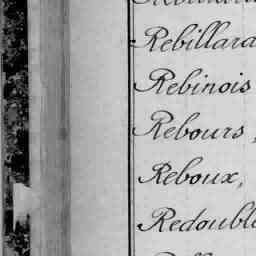 Rebillard
Rebinois
Rebours,
Reboux,
Redoubl